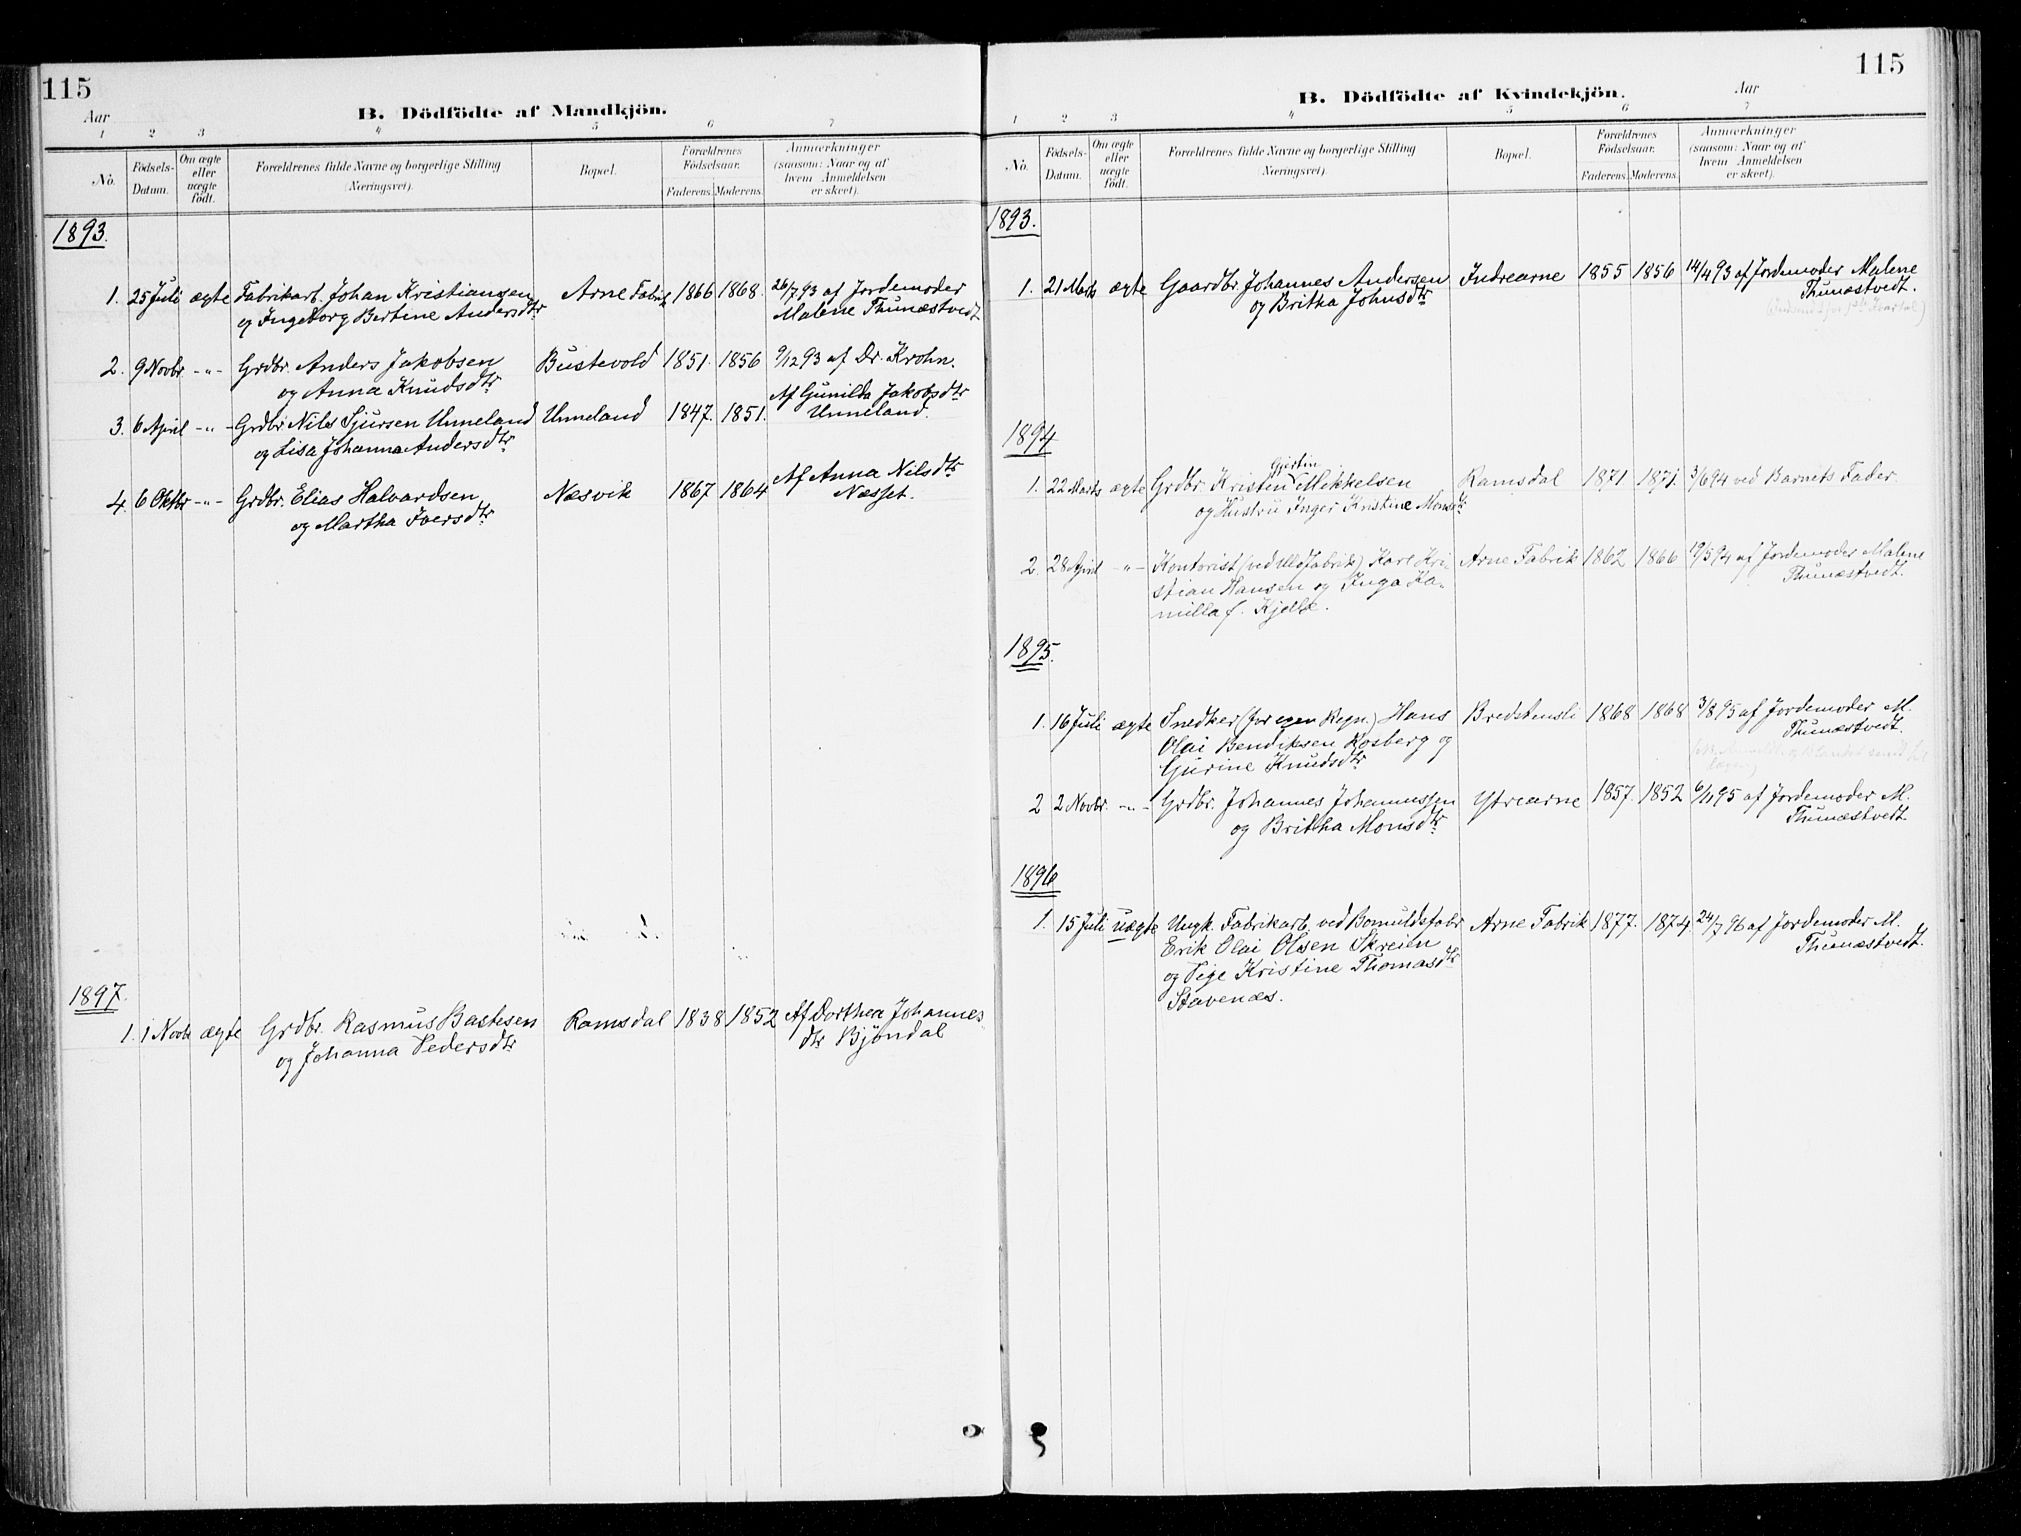 115
B. Dödfödte af Mandkjön.
Aar
1 2 3 4 5 6 7
No.
Födsels-Datum.
Om ægte eller uægte födt.
Forældrenes fulde Navne og borgerlige Stilling (Næringsvei).
Bopæl.
Forældrenes Födselsaar.
Faderens. Moderens.
Anmærkninger (saasom: Naar og af hvem Anmeldelsen er skeet).
1893.
1. 25 Juli ægte Fabrikarb. Johan Kristiansen Arne Fabrik 1866 1868. 26/7 93 af Jordemoder
og Ingeborg Bertine Andersdtr Malene Thunæstvedt
2. 9 Novbr. -"- Grdbr. Anders Jakobsen Bustevold 1851. 1856 9/12 93 af Dr. Krohn.
og Anna Knudsdtr
3. 6 April -"- Grdbr Nils Sjursen Unneland Unneland 1847. 1851. Af Gunilda Jakobsdtr
og Lisa Johanna Andersdtr Unneland.
4. 6 Oktbr -"- Grdbr. Elias Halvardsen Næsvik 1867 1864 Af Anna Nilsdtr
og Martha Iversdtr Næsset.
1897.
1. 1 Novbr ægte Grdbr. Rasmus Bastesen Ramsdal 1838 1852 Af Dorthea Johannes
og Johanna Pedersdtr dtr Bjøndal
115
B. Dödfödte af Kvindekjön.
Aar
1 2 3 4 5 6 7
No.
Födsels-Datum.
Om ægte eller uægte födt.
Forældrenes fulde Navne og borgerlige Stilling (Næringsvei).
Bopæl.
Forældrenes Födselsaar.
Faderens. Moderens.
Anmærkninger (saasom: Naar og af hvem Anmeldelsen er skeet).
1893.
1. 21 Marts ægte Gaardbr. Johannes Andersen Indrearne 1855 1856 14/4 93 af Jordemoder Malene
og Britha Johnsdtr Thunæstvedt.
1894
1. 22 Marts ægte Grdbr. Kristen Gjertin Mikkelsen Ramsdal 1871 1871. 3/6 94 ved Barnets Fader.
og Hustru Inger Kristine Monsdtr
2. 28 April -"- Kontorist (ved Uldfabrik) Karl Kri- Arne Fabrik 1862 1866 19/5 94 af Jordemoder Malene
stian Hansen og Inga Ka- Thunæstvedt.
milla f. Kjelle.
1895.
1. 16 Juli ægte Snedker (for egen Regn.) Hans Bredstensli 1868 1868 3/8 95 af Jordemoder M.
Olai Bendiksen Rosberg og Thunæstvedt.
Gurine Knudsdtr
2 2 Novbr. -"- Grdbr. Johannes Johannessen Ytrearne 1857. 1852 6/11 95 af Jordemoder M.
og Britha Monsdtr Thunæstvedt.
1896
1. 15 Juli uægte Ungk. Fabrikarb. ved Bomuldsfabr Arne Fabrik 1877. 1874. 24/7 96 af Jordemoder M.
Erik Olai Olsen Skreien Thunæstvedt.
og Pige Kristine Thomasdtr
Stavenæs.